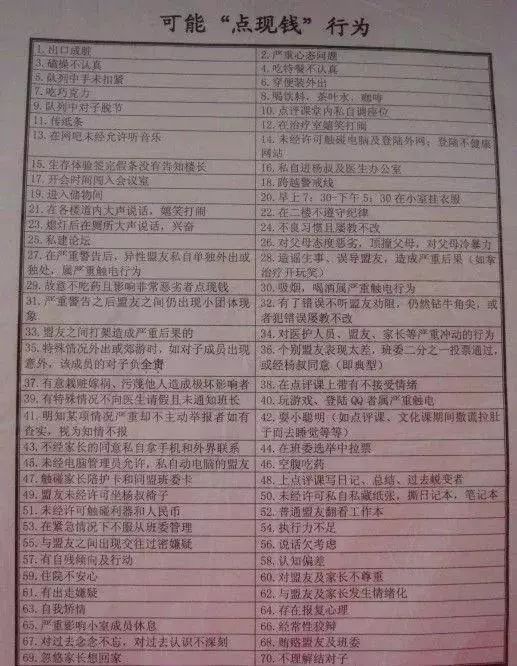 可能“点现钱”行为
1. 出口成脏
2. 严重心态问题
3. 磕操不认真
4. 吃特餐不认真
5. 队列中手未扣紧
6. 穿便装外出
7. 吃巧克力
8. 喝饮料，茶叶水，咖啡
9. 队列中对子脱节
10. 点评课堂内私自调座位
11. 传纸条
12. 在治疗室嬉笑打闹
13. 在网吧未经允许听音乐
14. 未经许可触碰电脑及登陆外网；登陆不健康
网站
15. 生存体验签完假条没有告知楼长
16. 私自进杨叔及医生办公室
17. 开会时间闯入会议室
18. 跨越警戒线
19. 进入储物间
20. 早上 7：30-下午 5：30 在小室挂衣服
21. 在各楼道内大声说话，嬉笑打闹
22. 在二楼不遵守纪律
23. 熄灯后在厕所大声说话，兴奋
24. 不良习惯且屡教不改
25. 私建论坛
26. 对父母态度恶劣，顶撞父母，对父母冷暴力
27. 在严重警告后，异性盟友私自单独外出或
独处，属严重触电行为
28. 造谣生事、误导盟友，造成严重后果（如拿
治疗开玩笑）
29. 故意不吃药且影响非常恶劣者点现钱
30. 吸烟，喝酒属严重触电行为
31. 严重警告之后盟友之间仍出现小团体现
象
32. 有了错误不听盟友劝阻，仍然钻牛角尖，或
者犯错误屡教不改
33. 盟友之间打架造成严重后果的
34. 对医护人员、盟友、家长等严重冲动的行为
35. 特殊情况外出或郊游时，如对子成员出现
意外，该成员的对子负全责
36. 个别盟友表现太差，班委二分之一投票通过，
或经杨叔同意（即典型）
37. 有意栽赃嫁祸，污蔑他人造成极坏影响者
38. 在点评课上带有不接受情绪
39. 有特殊情况不向医生请假且未通知班长
40. 玩游戏、登陆 QQ 者属严重触电
41. 明知某项情况严重却不主动举报者如有
查实，视为知情不报
42. 耍小聪明（如点评课、文化课期间撒谎拉肚
子而去睡觉等等）
43. 不经家长的同意私自拿手机和外界联系
44. 在班委选举中拉票
45. 未经电脑管理员允许，私自动电脑的盟友
46. 空腹吃药
47. 触碰家长陪护卡和同盟班委卡
48. 上点评课写日记、总结、过去蜕变者
49. 盟友未经许可坐杨叔椅子
50. 未经许可私自私藏纸张，撕日记本，笔记本
51. 未经许可触碰利器和人民币
52. 普通盟友翻看工作本
53. 在紧急情况下不服从班委管理
54. 执行力不足
55. 与盟友之间出现交往过密嫌疑
56. 说话欠考虑
57. 有自残倾向及行动
58. 认知偏差
59. 住院不安心
60. 对盟友及家长不尊重
61. 有出走嫌疑
62. 与盟友及家长发生情绪化
63. 自我矫情
64. 存在报复心理
65. 严重影响小室成员休息
66. 经常性狡辩
67. 对过去念念不忘，对过去认识不深刻
68. 贿赂盟友及班委
69. 忽悠家长想回家
70. 不理解结对子